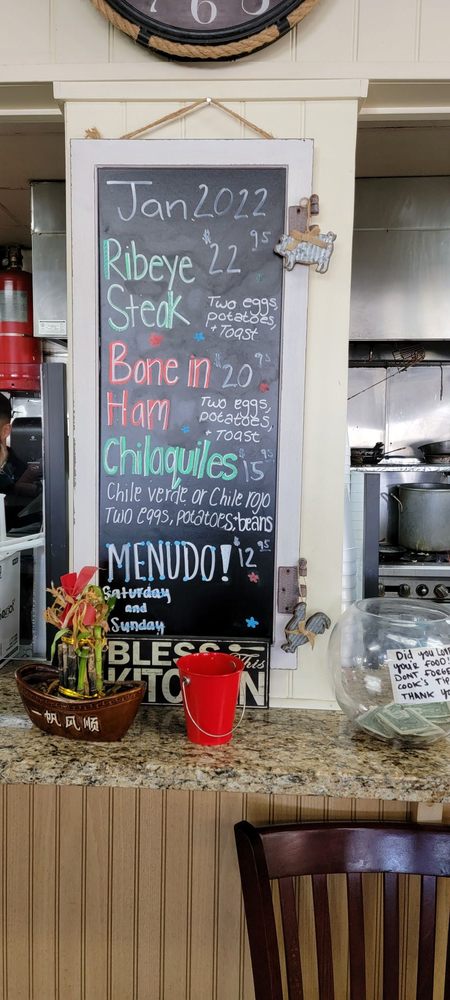 6
Jan 2022
Ribeye $22.95
Steak Two eggs,
potatoes,
+ Toast
Bone in $20.95
Ham Two eggs,
potatoes,
+ Toast
Chilaquiles $15.95
Chile verde or Chile rojo
Two eggs, potatoes + beans
MENUDO! $12.95
Saturday
and
Sunday
BLESS This
KITCHEN
一帆风顺
Did you
your FOOD!
DONT
COOK'S
THANK